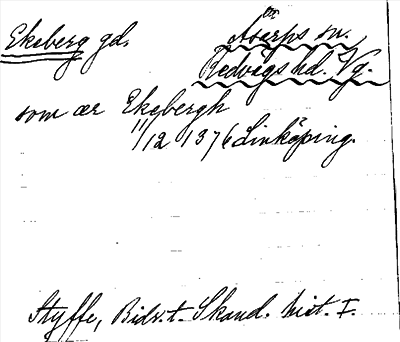 Ekeberg gd.
Åsarps sn.
Redvägs hd. Vg.
som ær Ekebergh
11/12 1376 Linköping.
Styffe, Bidr. t. Skand. hist. I.